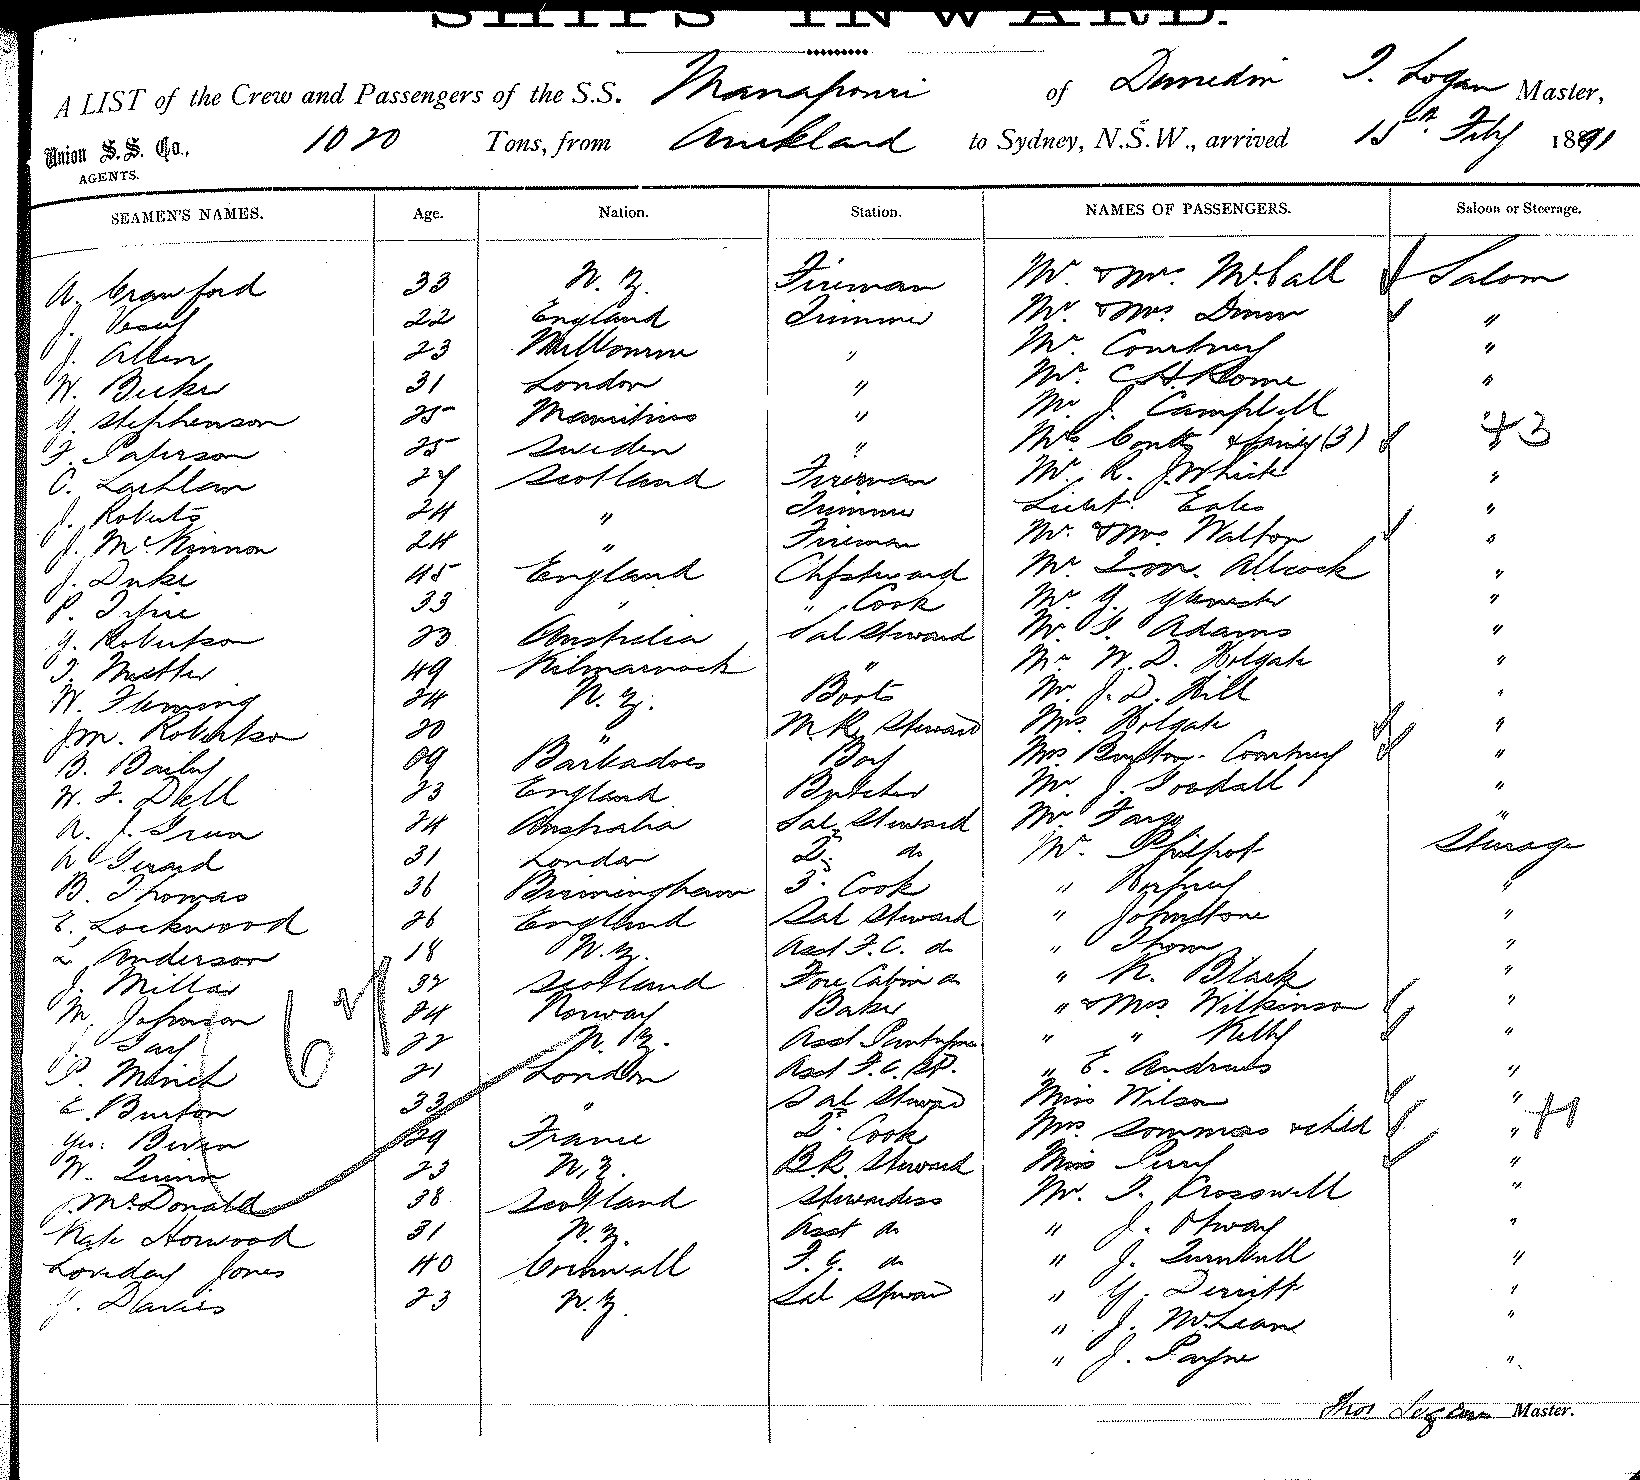 SHIPS INWARD.
A LIST of the Crew and Passengers of the S.S. Manapouri of Dunedin T. Logan Master,
Union S.S. Co., AGENTS. 1020 Tons, from Auckland to Sydney, N.S.W., arrived 15th Feby 1891
SEAMEN'S NAMES. Age. Nation. Station. NAMES OF PASSENGERS. Saloon or Steerage.
A. Crawford 33 N. Z. Fireman Mr. & Mrs. McCall Saloon
J. 22 England Trimmer Mr. & Mrs. Dunn "
J. Allen 23 Melbourne " Mr. Courtney "
W. Becker 31 London " Mr. C H. Rome "
G. Stephenson 25 Mauritius " Mr. J. Campbell "
F. Paterson 25 Sweden " Mrs. & family (3) 43
C. Lachlan 27 Scotland Fireman Mr. R. J. White "
J. Roberts 24 " Trimmer Lieut. Eales "
J. McKinnon 24 " Fireman Mr. & Mrs. Walton "
J. Duke 45 England Chf Steward Mr. T. M. Allcock "
P. 33 " " Cook Mr. G. "
G. Robertson 23 Australia Sal Steward Mr. Adams "
T. 49 Kilmarnock " Mr. W. D. Holgate "
W. Fleming 24 N. Z. Boots Mr. J. D. Hill "
Jm. Robertson 20 " M. R. Steward Mrs. Holgate "
B. Baily 09 Barbadoes Boy Mrs. Courtney "
W. F. Dell 23 England Butcher Mr. J. Goodall "
A. J. 24 Australia Sal. Steward Mr. "
A Gerard 31 London 2. do Mr. Philpot Steerage
B. Thomas 36 Birmingham 3. Cook " "
E. Lockwood 26 England Sal Steward " Johnstone "
L. Anderson 18 N. Z. Asst F.C. do " Thom "
J. Millar 32 Scotland Fore Cabin do " R. Black "
M. Johnson 24 Norway Baker " & Mrs Wilkinson "
Gay 22 N. Z. Asst " " Kelly "
P. 21 London Asst F.C. " E. Andrews "
E. Burton 33 " Sal Steward Miss Wilson "
Geo: 29 France 2. Cook Mrs. & child " 41
W. Quinn 23 N. Z. B.R. Steward Miss "
J. McDonald 38 Scotland Stewardess Mr. T. Crosswell "
Kate Horwood 31 N. Z. Asst do " J. Otway "
Loveday Jones 40 Cornwall F. C. do " J. Turnbull "
J. Davies 23 N. Z. Sal Steward " G. "
" J. McLean "
" J. Payne "
Thos Logan Master.